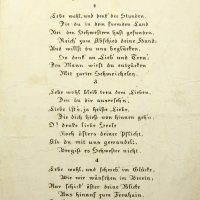 2
Lebe wohl, und denk' der Stunden,
Die du in dem fremden Land
Mit den Schwestern hast gefunden.
Reich' zum Abschied deine Hand;
Und willst du uns beglücken,
So denk' an Lieb und Treu:
Den Mann wirst du entzücken
Mit zarter Schmeichelei.
3
Lebe wohl bleib treu dem Leben,
Den du dir ausersehn;
Liebe ist's, ja heiße Liebe,
Die dich hieß von hinnen gehn.
O! denke liebe Seele
Noch öfters deiner Pflicht,
Die du mit uns gewandelt,
Vergiß die Schwester nicht.
4
Lebe wohl, und schweb' im Glücke,
Wie wir wünschen im Verein;
Nur schick' öfter deine Blicke
Uns hinauf zum